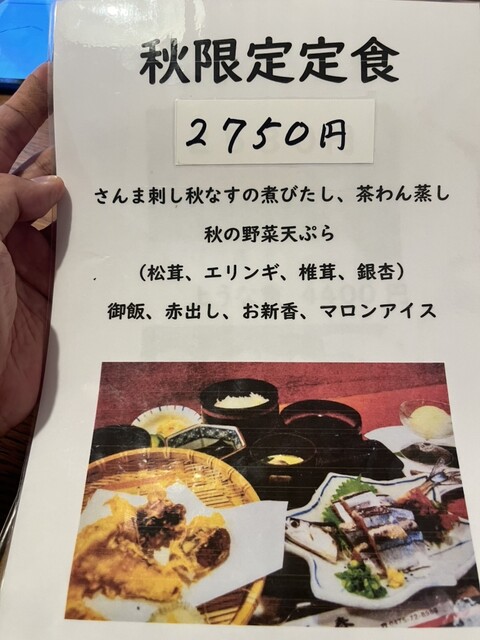 秋限定定食
2750円
さんま刺し秋なすの煮びたし、茶わん蒸し
秋の野菜天ぷら
（松茸、エリンギ、椎茸、銀杏）
御飯、赤出し、お新香、マロンアイス